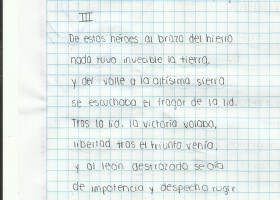 III
De estos héroes al brazo del hierro
nada tuvo invecible la tierra,
y del valle a la altísima sierra
se escuchaba el fragor de la lid.
Tras la lid, la victoria volaba,
libertad tras el triunfo venía,
y al león destrozado se oía
de impotencia y despecho rugir